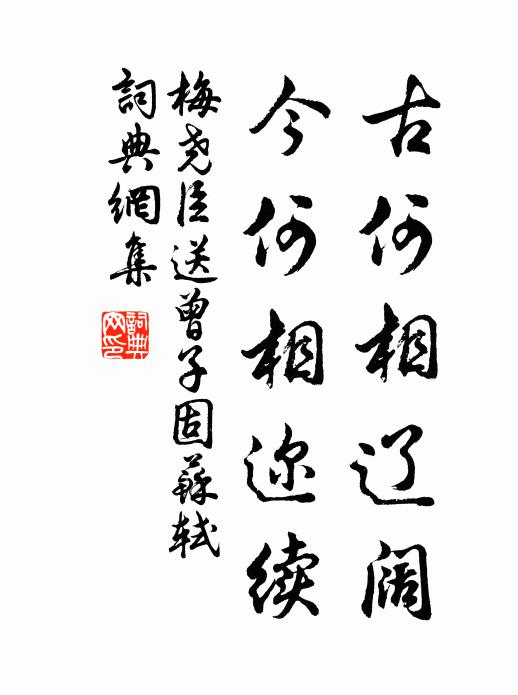 古何相辽阔
今何相迩续
梅尧臣送曾子固苏轼
詞典網集
詞典网印